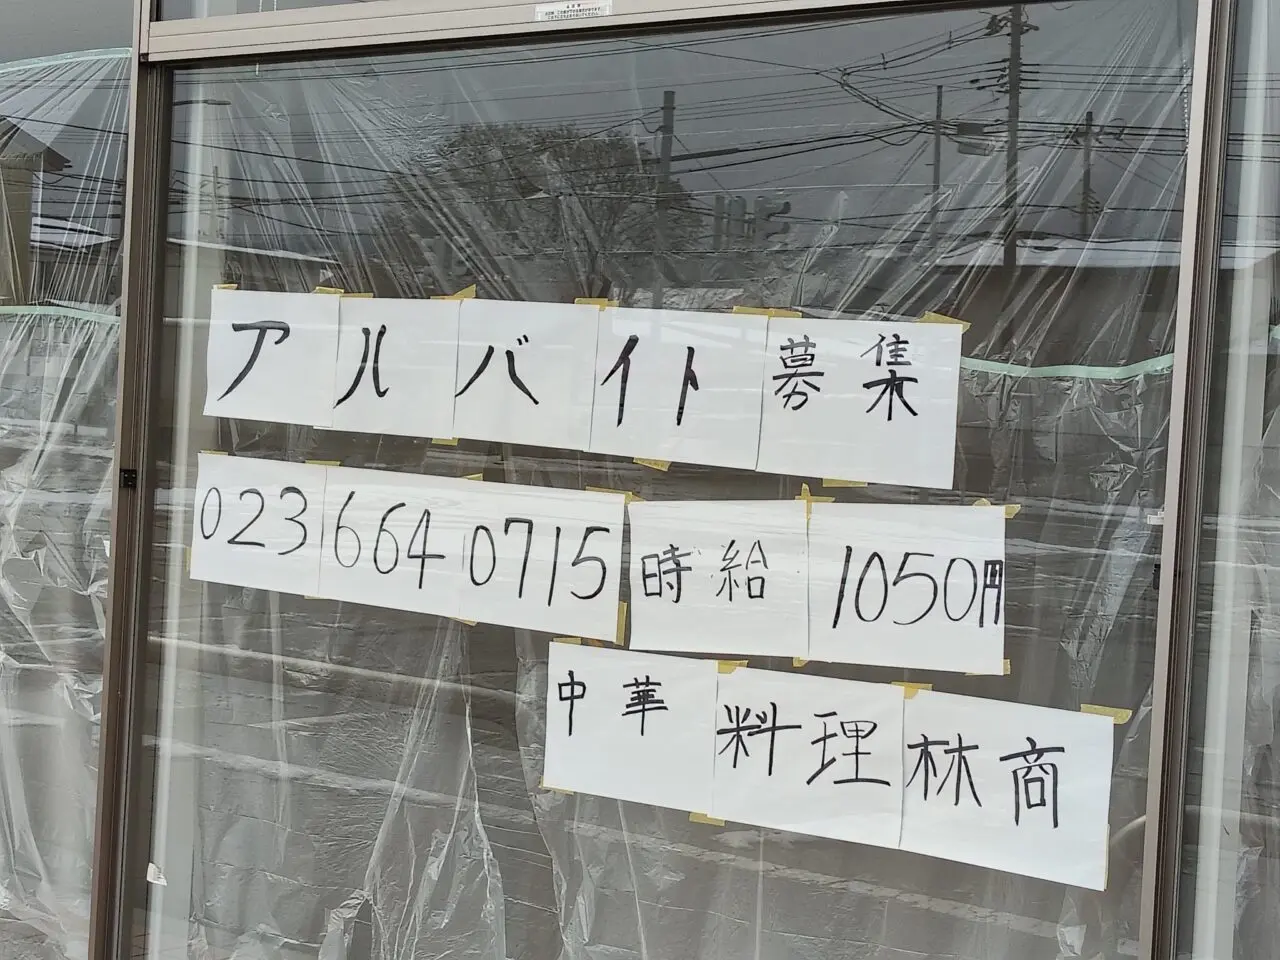 アルバイト募集
023 664 0715 時給 1050円
中華料理林商